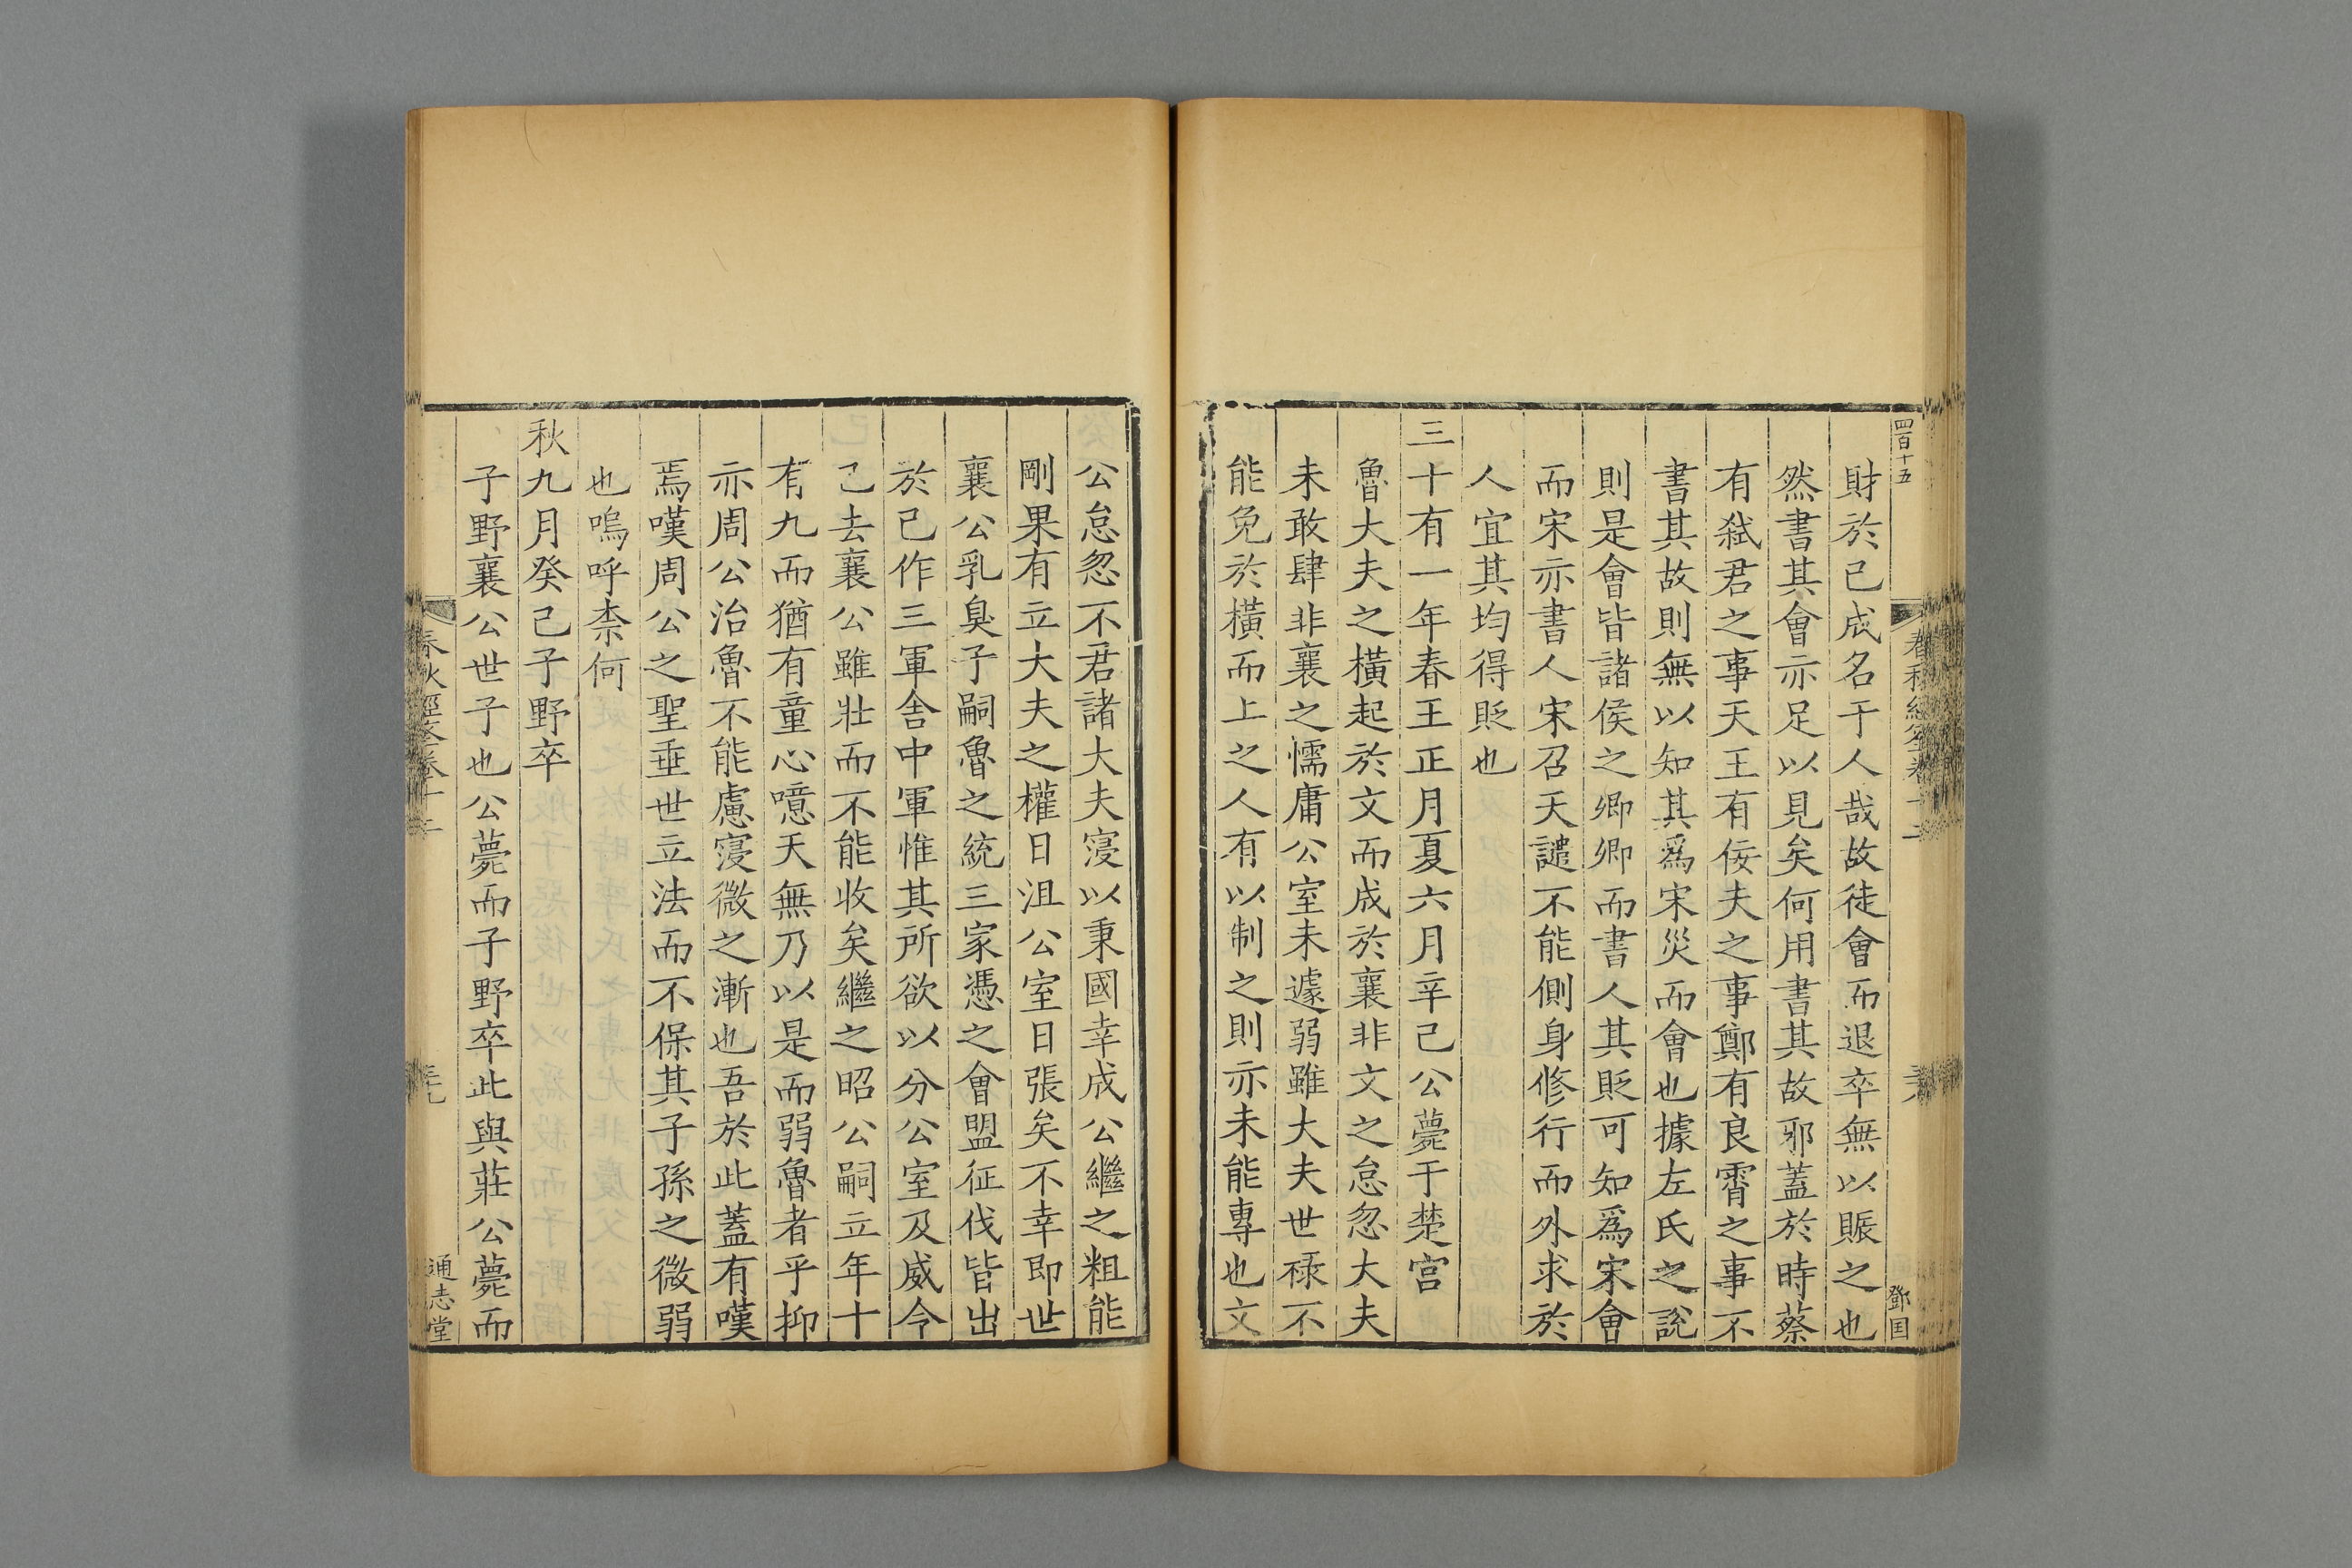 四百十五
財於己成名于人哉故徒會而退卒無以賑之也
然書其會亦足以見矣何用書其故邪蓋於時蔡
有弑君之事天王有佞夫之事鄭有良霄之事不
書其故則無以知其爲宋災而會也據左氏之説
則是會皆諸侯之卿卿而書人其貶可知爲宋會
而宋亦書人宋召天譴不能側身修行而外求於
人宜其均得貶也
三十有一年春王正月夏六月辛己公薨于楚宮
魯大夫之橫起於文而成於襄非文之怠忽大夫
未敢肆非襄之懦庸公室未遽弱雖大夫世祿不
能免於橫而上之人有以制之則亦未能專也文
公怠忽不君諸大夫寖以秉國幸成公繼之粗能
剛果有立大夫之權日沮公室日張矣不幸即世
襄公乳臭子嗣魯之統三家憑之會盟征伐皆出
於己作三軍舍中軍惟其所欲以分公室及威令
己去襄公雖壯而不能收矣繼之昭公嗣立年十
有九而猶有童心噫天無乃以是而弱魯者乎抑
亦周公治魯不能慮寖微之漸也吾於此蓋有嘆
焉嘆周公之聖垂世立法而不保其子孫之微弱
也嗚呼柰何
秋九月癸己子野卒
子野襄公世子也公薨而子野卒此與莊公薨而
春秋經筌卷十二
通志堂